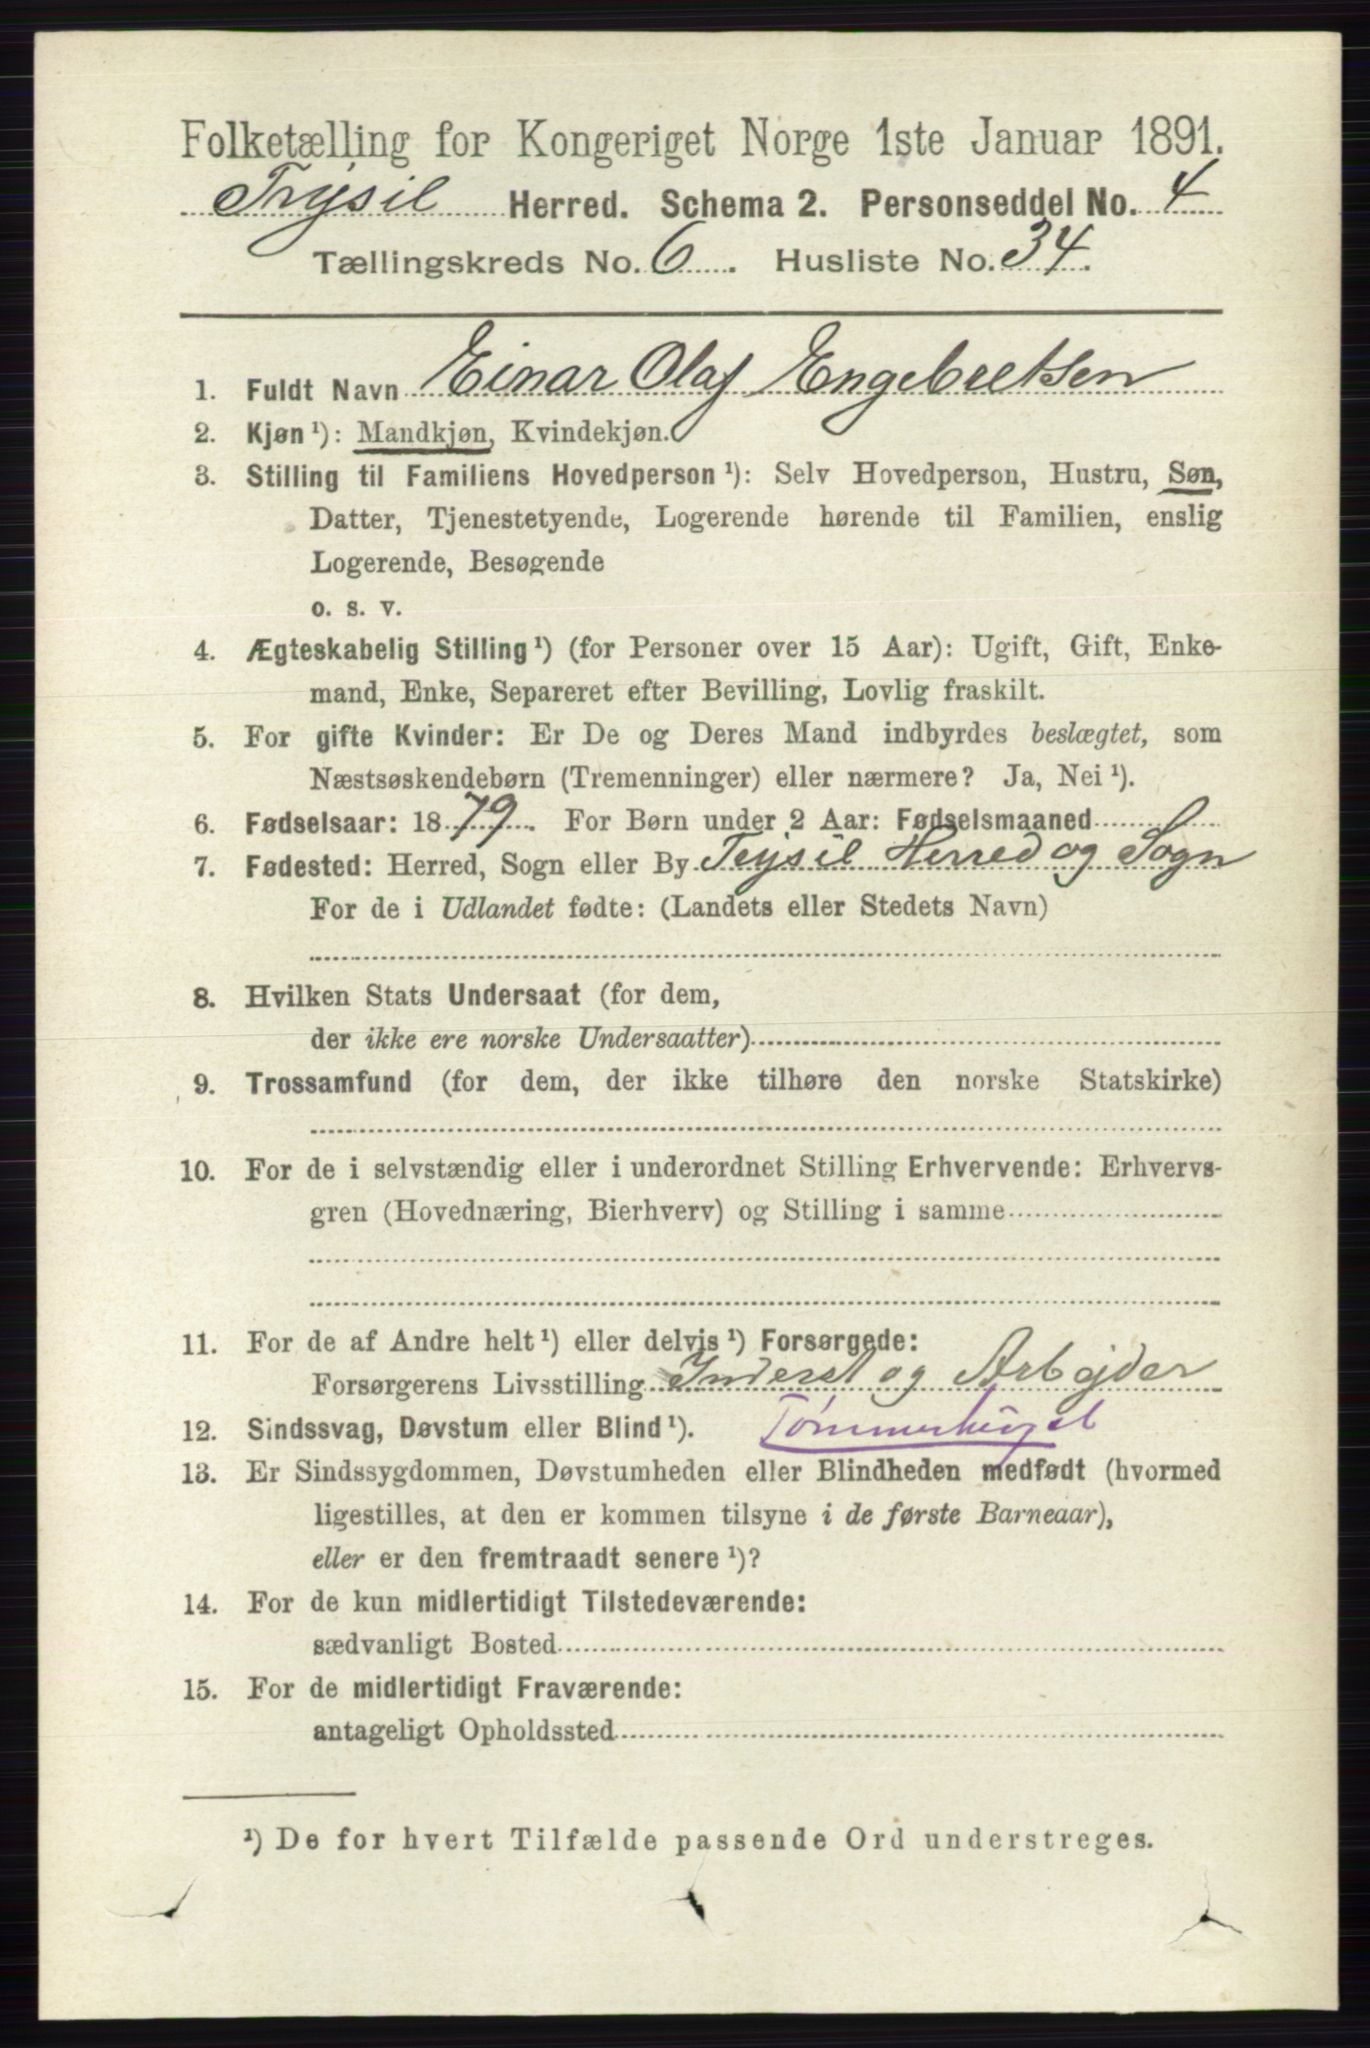 Folketælling for Kongeriget Norge 1ste Januar 1891.
Trysil Herred. Schema 2. Personseddel No. 4
Tællingskreds No. 6. Husliste No. 34.
1. Fuldt Navn Einar Olaf Engebretsen
2. Kjøn ¹): Mandkjøn, Kvindekjøn.
3. Stilling til Familiens Hovedperson ¹): Selv Hovedperson, Hustru, Søn,
Datter, Tjenestetyende, Logerende hørende til Familien, enslig
Logerende, Besøgende
o. s. v.
4. Ægteskabelig Stilling ¹) (for Personer over 15 Aar): Ugift, Gift, Enke-
mand, Enke, Separeret efter Bevilling, Lovlig fraskilt.
5. For gifte Kvinder: Er De og Deres Mand indbyrdes beslægtet, som
Næstsøskendebørn (Tremenninger) eller nærmere? Ja, Nei ¹).
6. Fødselsaar: 1879. For Børn under 2 Aar: Fødselsmaaned
7. Fødested: Herred, Sogn eller By Trysil Herred og Sogn
For de i Udlandet fødte: (Landets eller Stedets Navn)
8. Hvilken Stats Undersaat (for dem,
der ikke ere norske Undersaatter)
9. Trossamfund (for dem, der ikke tilhøre den norske Statskirke)
10. For de i selvstændig eller i underordnet Stilling Erhvervende: Erhvervs-
gren (Hovednæring, Bierhverv) og Stilling i samme
11. For de af Andre helt ¹) eller delvis ¹) Forsørgede:
Forsørgerens Livsstilling Inderst og Arbejder
12. Sindssvag, Døvstum eller Blind ¹).
13. Er Sindssygdommen, Døvstumheden eller Blindheden medfødt (hvormed
ligestilles, at den er kommen tilsyne i de første Barneaar),
eller er den fremtraadt senere ¹)?
14. For de kun midlertidigt Tilstedeværende:
sædvanligt Bosted
15. For de midlertidigt Fraværende:
antageligt Opholdssted
¹) De for hvert Tilfælde passende Ord understreges.